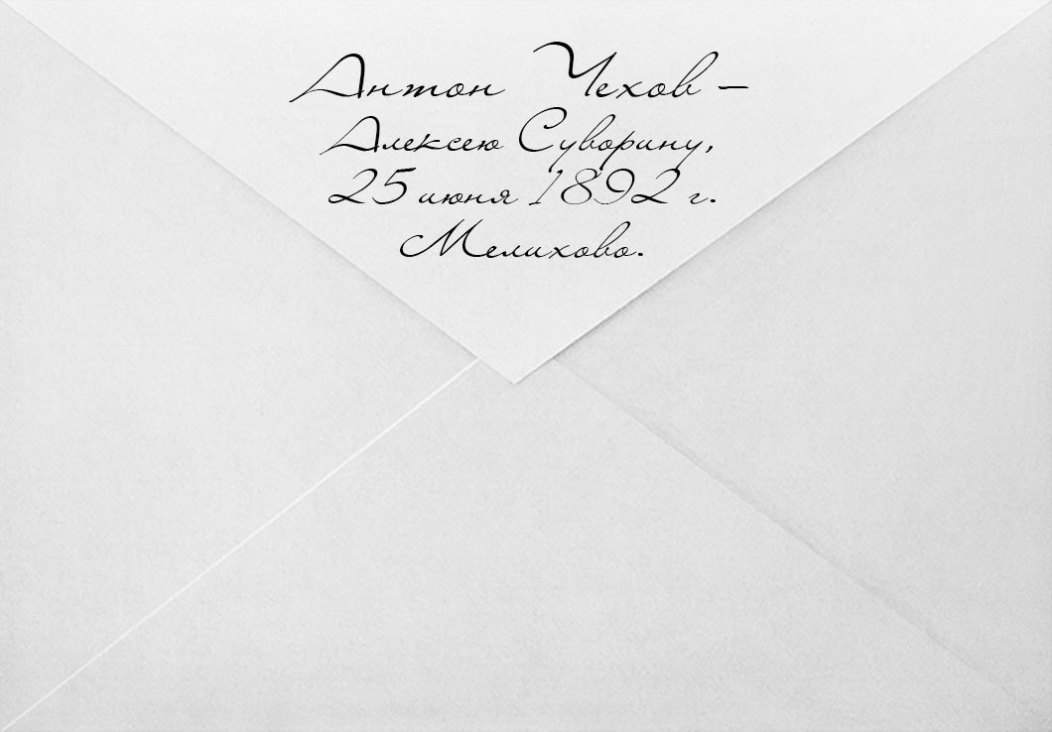 Антон Чехов –
Алексею Суворину,
25 июня 1892 г.
Мелихово.